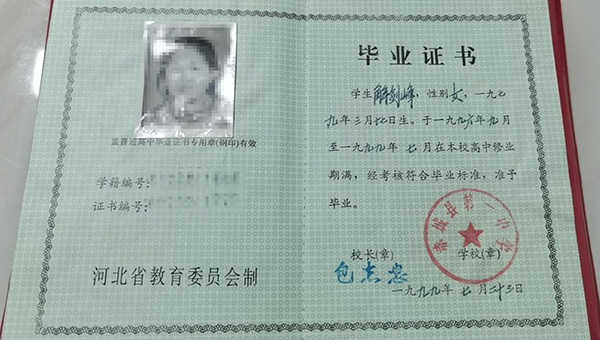 盖普通高中毕业证书专用章(钢印)有效
学籍编号:
证书编号:
河北省教育委员会制
毕业证书
学生解剑峰,性别女,一九七
九年三月七日生。于一九九六年九月
至一九九九年七月在本校高中修业
期满,经考核符合毕业标准,准予
毕业。
校长(章)
学校(章)
包志忠
县第一中学
一九九九年七月二十三日